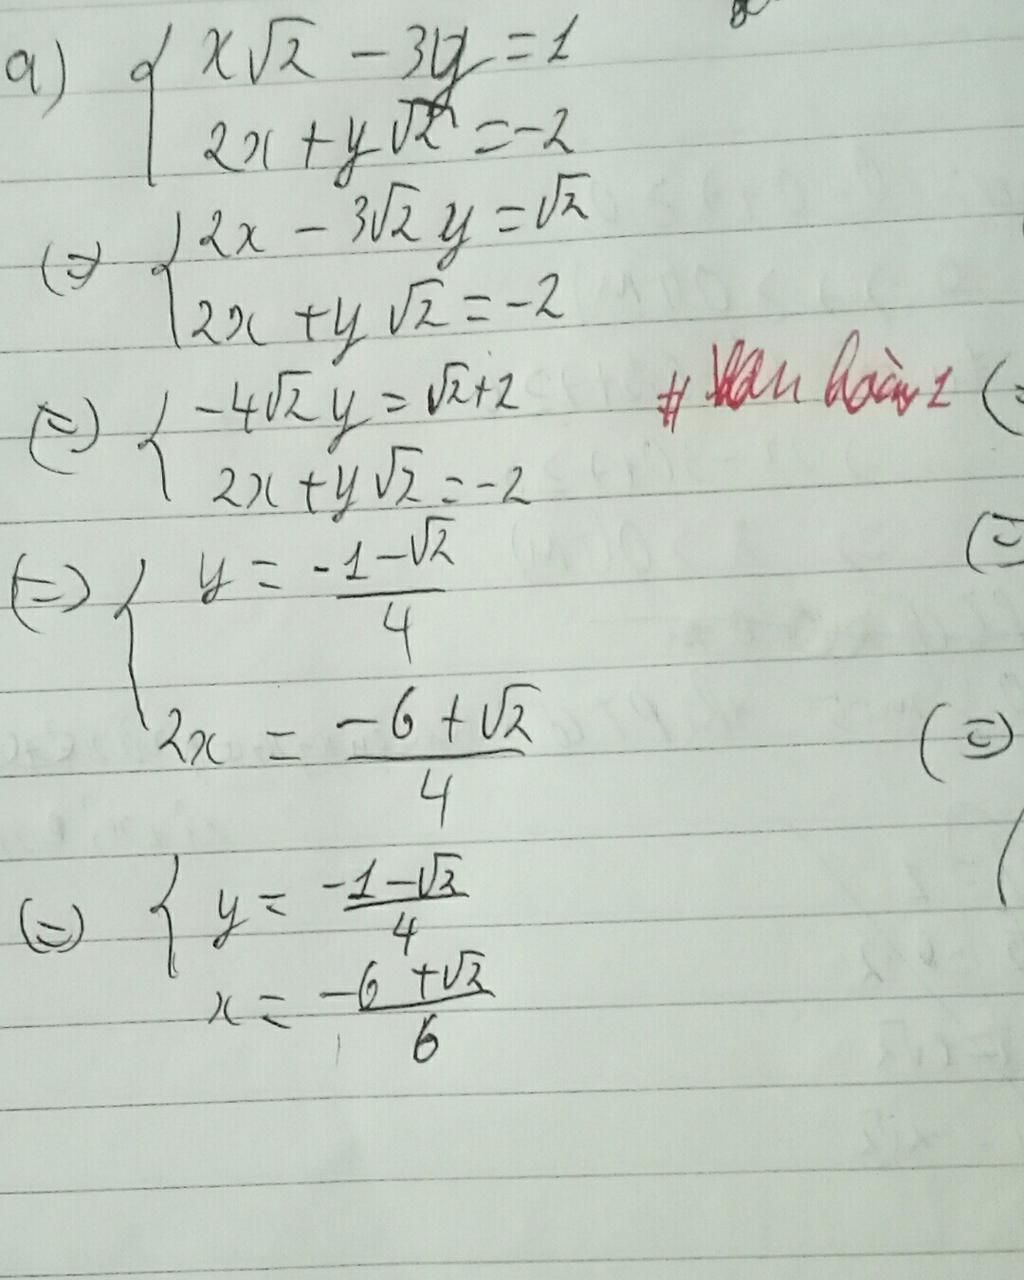 a) { x√2 - 3y = 1
2x + y√2 = -2
(=) { 2x - 3√2 y = √2
2x + y√2 = -2
(=) { -4√2 y = √2+2
2x + y√2 = -2
(=) { y = (-1-√2)/4
2x = (-6+√2)/4
(=) { y = (-1-√2)/4
x = (-6+√2)/6
(=
(=
(=)